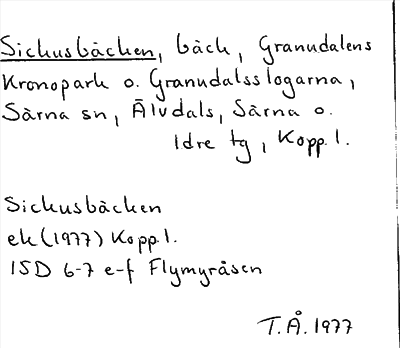 Sickusbäcken, bäck, Granudalens
Kronopark o. Granudalsslogarna,
Särna sn, Älvdals, Särna o.
Idre tg, Kopp. l.
Sickusbäcken
ek (1977) Kopp l.
15D 6-7 e-f Flymyråsen
T.Å. 1977